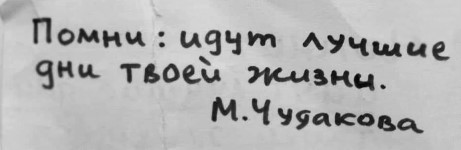 Помни: идут лучшие
дни твоей жизни.
М.Чудакова